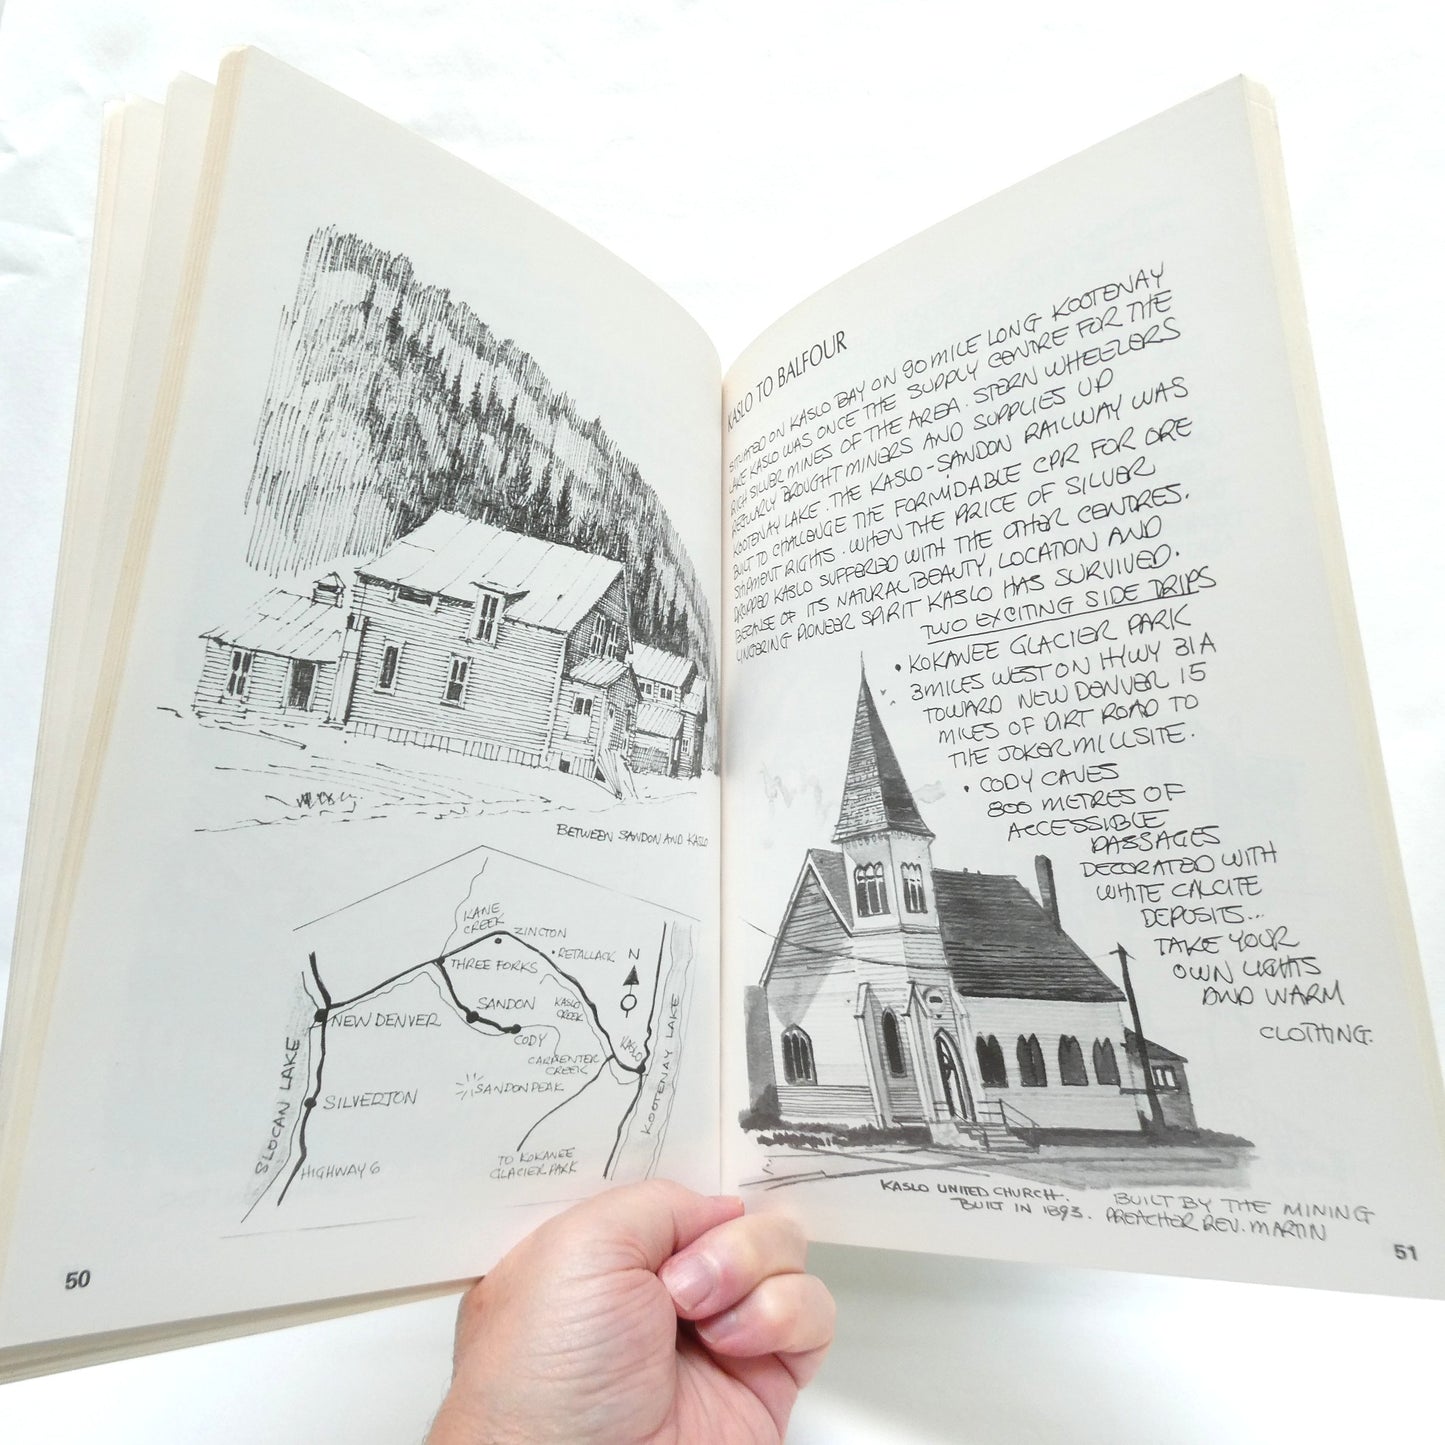 BETWEEN SANDON AND KASLO
KANE
CREEK
ZINCTON
RETALLACK
N
THREE FORKS
SANDON
KASLO
CREEK
NEW DENVER
CODY
KASLO
CARPENTER
CREEK
SANDON PEAK
SILVERTON
SLOCAN LAKE
KOOTENAY LAKE
HIGHWAY 6
TO KOKANEE
GLACIER PARK
50
KASLO TO BALFOUR
SITUATED ON KASLO BAY ON 90 MILE LONG KOOTENAY
LAKE KASLO WAS ONCE THE SUPPLY CENTRE FOR THE
RICH SILVER MINES OF THE AREA. STERN WHEELERS
REGULARLY BROUGHT MINERS AND SUPPLIES UP
KOOTENAY LAKE. THE KASLO-SANDON RAILWAY WAS
BUILT TO CHALLENGE THE FORMIDABLE CPR FOR ORE
SHIPMENT RIGHTS. WHEN THE PRICE OF SILVER
DROPPED KASLO SUFFERED WITH THE OTHER CENTRES.
BECAUSE OF ITS NATURAL BEAUTY, LOCATION AND
LINGERING PIONEER SPIRIT KASLO HAS SURVIVED.
TWO EXCITING SIDE TRIPS
• KOKANEE GLACIER PARK
3 MILES WEST ON HYWY 31A
TOWARD NEW DENVER 15
MILES OF DIRT ROAD TO
THE JOKER MILLSITE.
• CODY CAVES
800 METRES OF
ACCESSIBLE
PASSAGES
DECORATED WITH
WHITE CALCITE
DEPOSITS...
TAKE YOUR
OWN LIGHTS
AND WARM
CLOTHING.
KASLO UNITED CHURCH.
BUILT IN 1893.
BUILT BY THE MINING
PREACHER REV. MARTIN
51